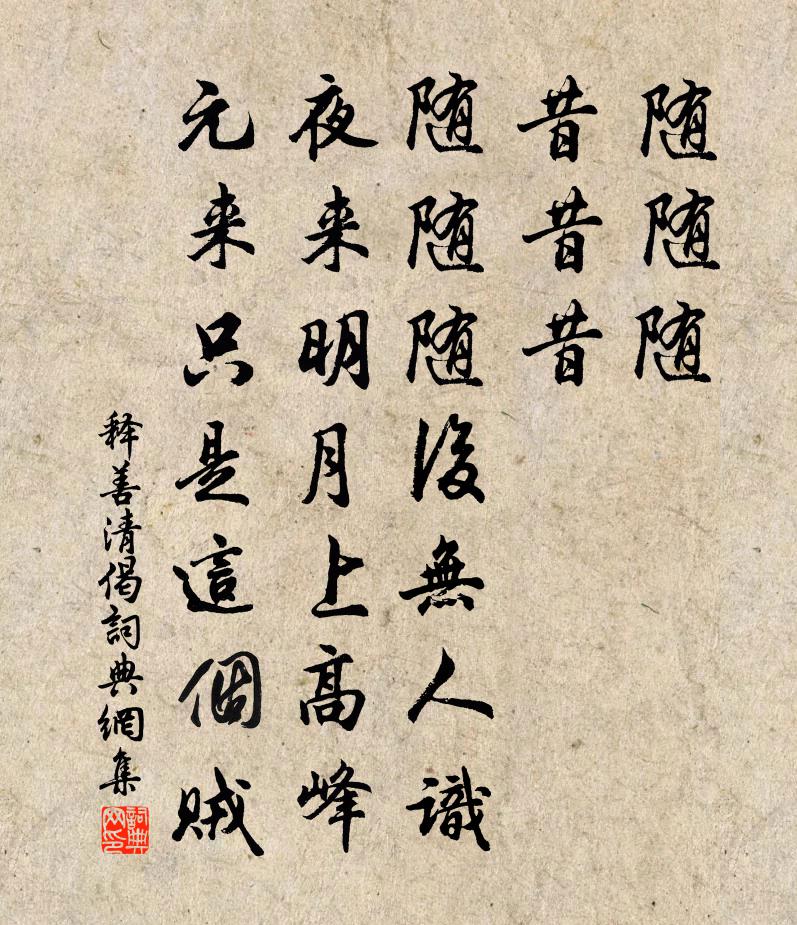 随随随
昔昔昔
随随随後無人識
夜来明月上高峰
元来只是這個賊
释善清偈詞典網集
詞典网印